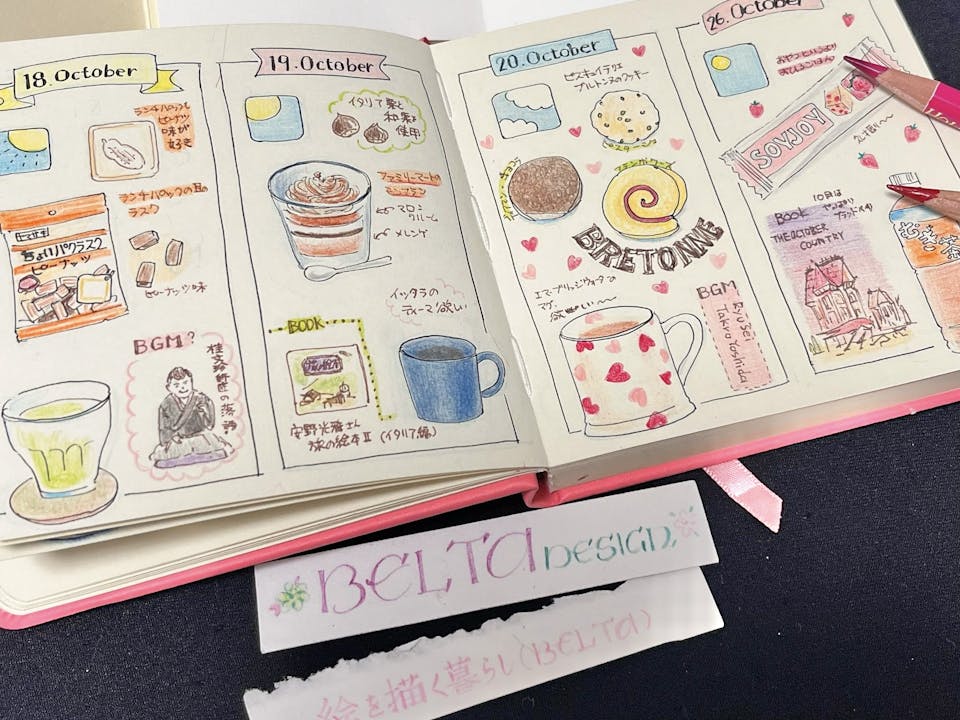 18. October
ランチパックは
ピーナッツ
味が
好き
ランチパックの耳の
ラスク
ちょいパクラスク
ピーナッツ
ピーナッツ味
BGM?
19. October
イタリア栗と
和栗を
使用
ファミリーマートの
モンブラン
マロン
クリーム
メレンゲ
イッタラの
ティーマ欲しい
BOOK
旅の絵本
安野光雅さん
旅の絵本II (イタリア編)
20. October
ビスキュイテリエ
ブルトンヌのクッキー
BRETONNE
エマ・ブリッジウォーターの
マグ
欲しい〜
BGM
Ryu Sei
Takyo Yoshida
26. October
SOYJOY
10月は
BOOK
THE OCTOBER
COUNTRY
むぎ茶
BELTA DESIGN
絵を描く暮らし(BELTA)